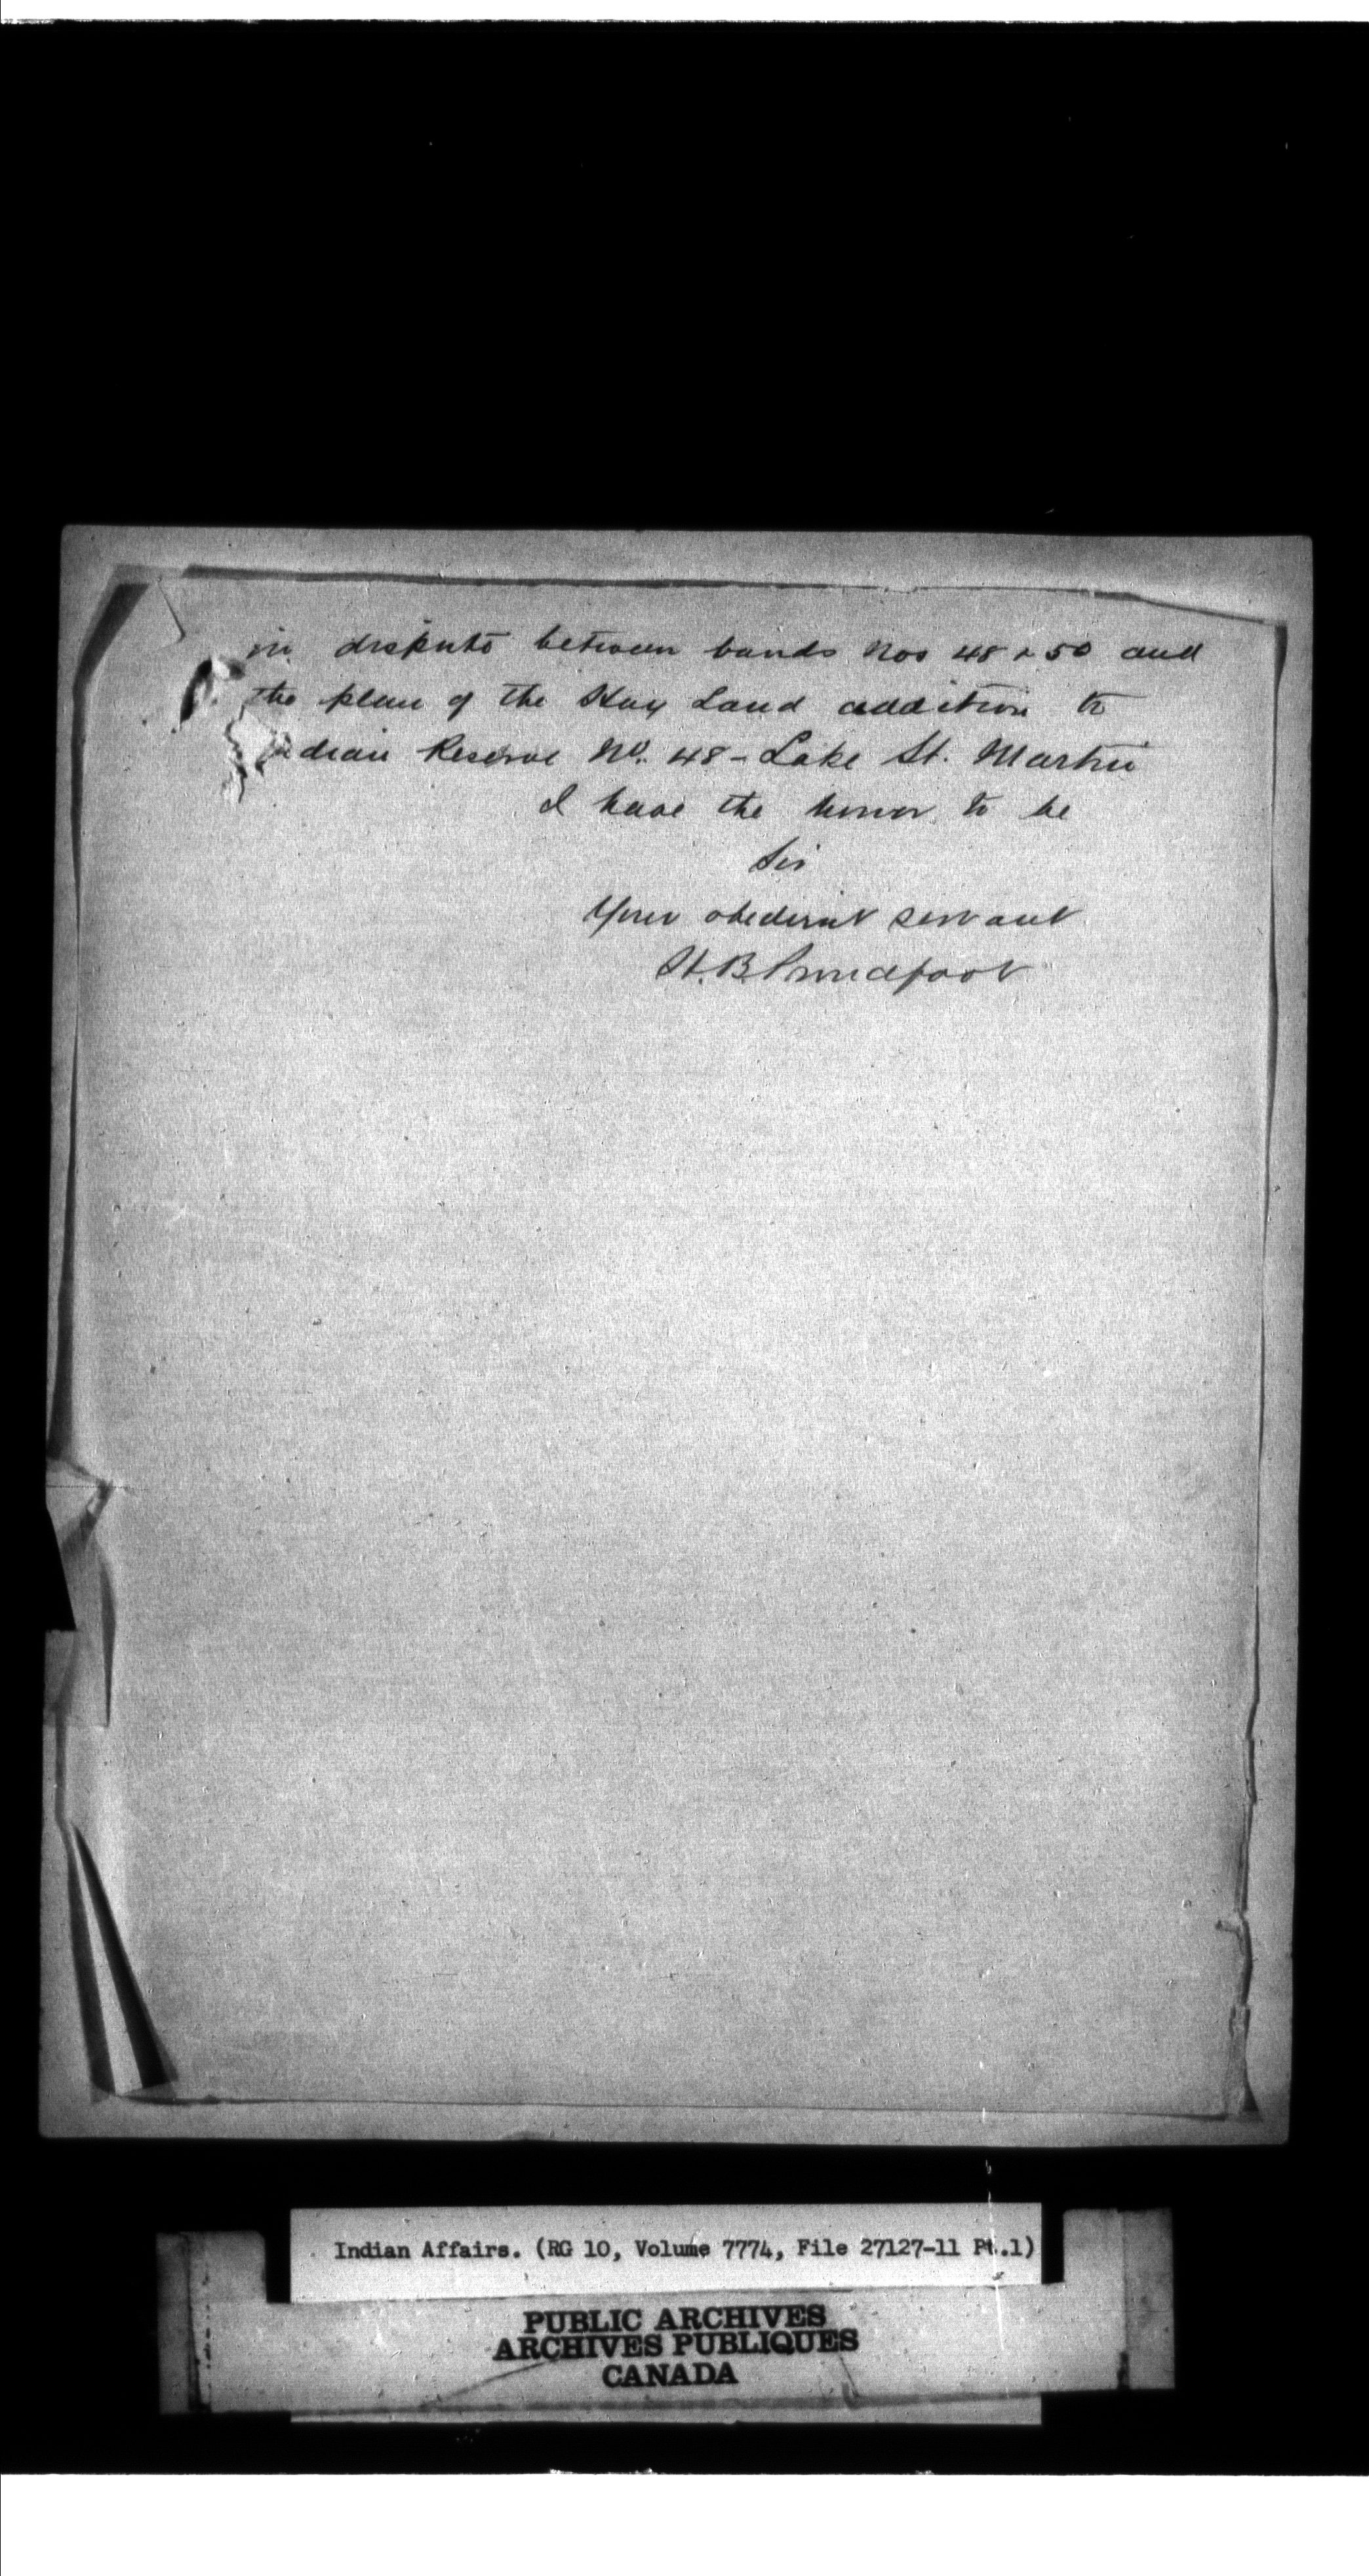 in dispute between bands Nos 48 & 50 and
the plan of the Hay Land addition to
Indian Reserve No. 48 - Lake St. Martin
I have the honor to be
Sir
Your obedient servant
H.B. Proudfoot
Indian Affairs. (RG 10, Volume 7774, File 27127-11 Pt.1)
PUBLIC ARCHIVES
ARCHIVES PUBLIQUES
CANADA